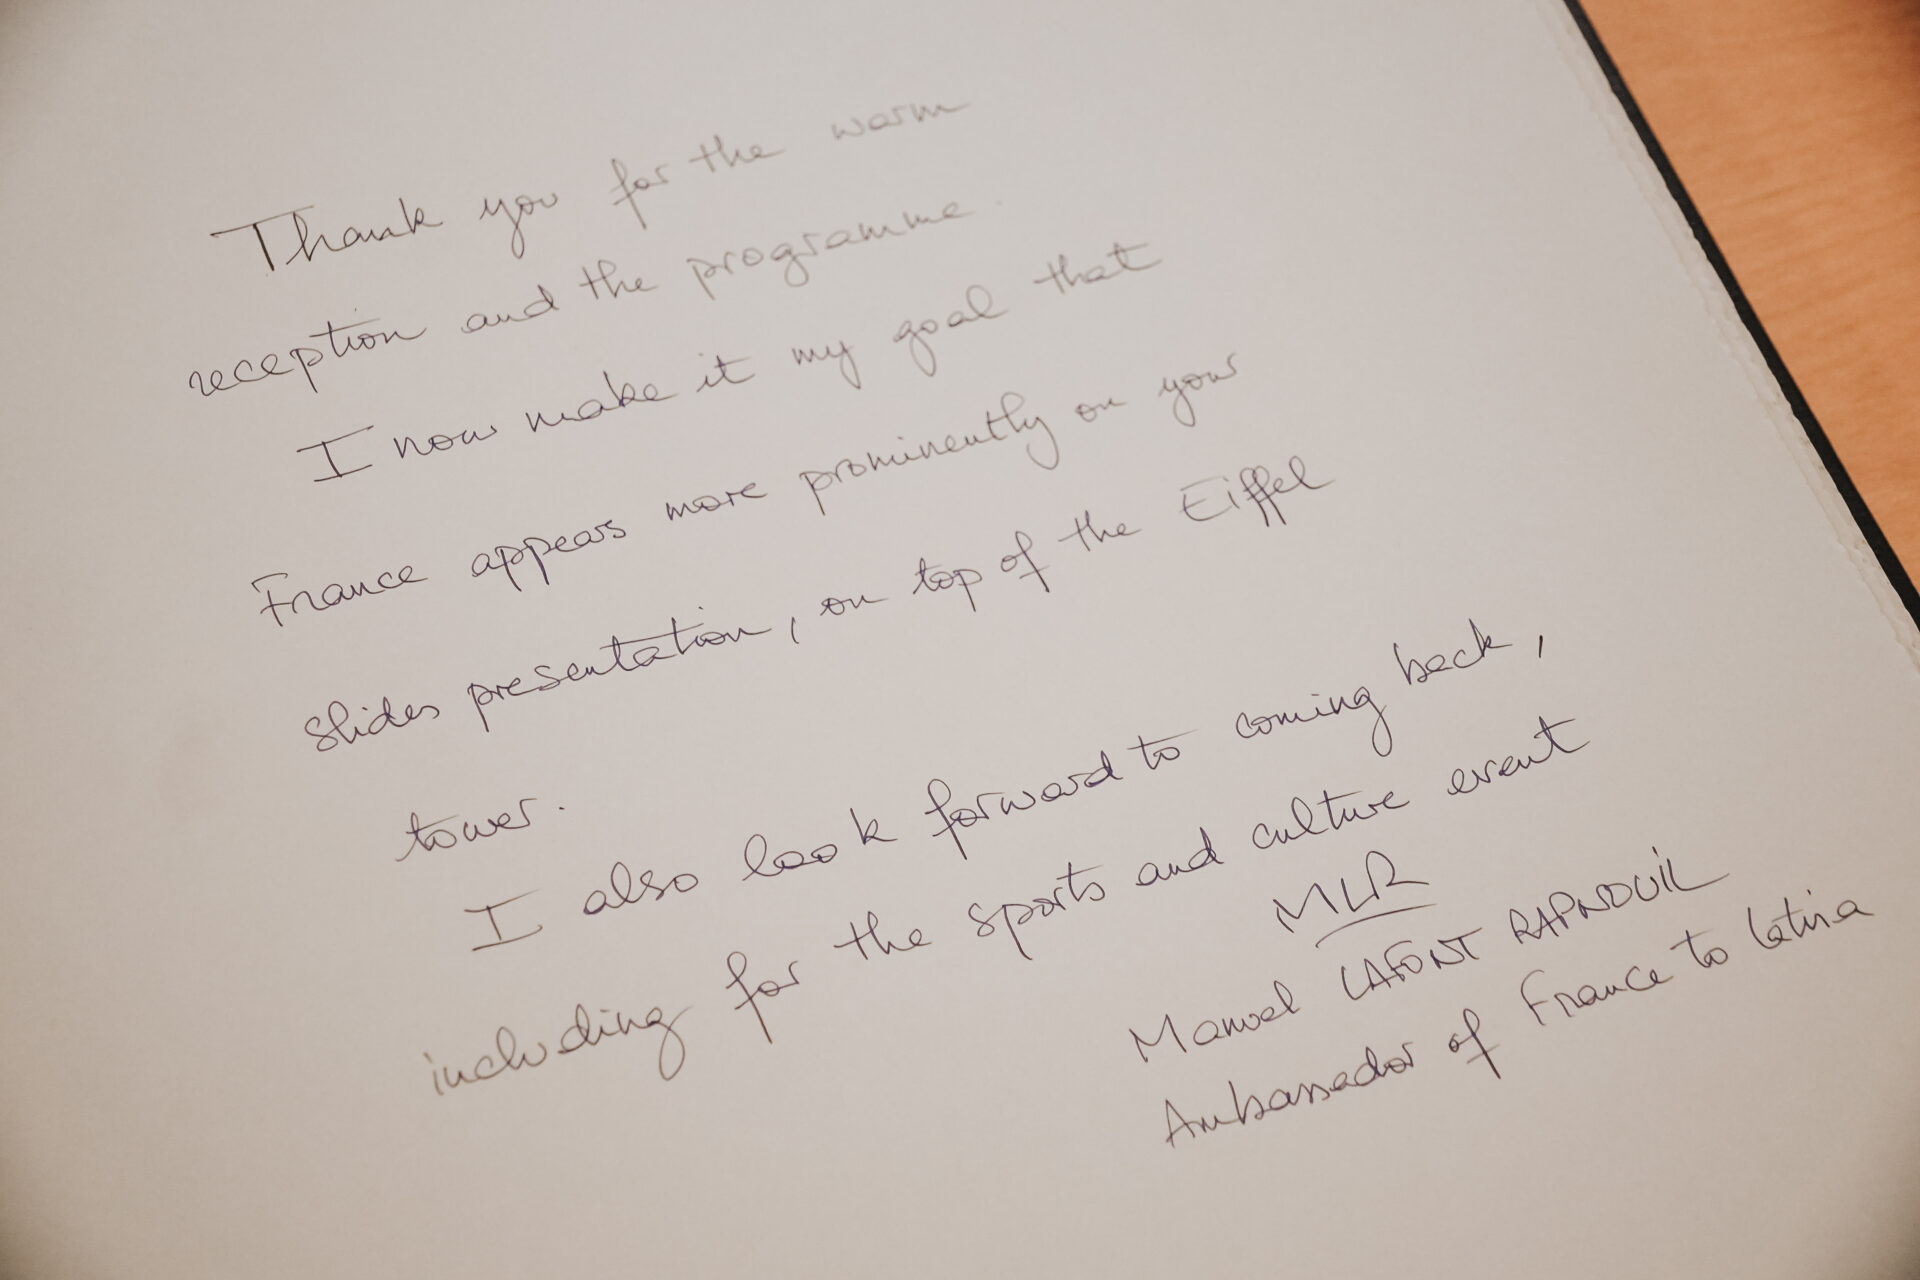 Thank you for the warm
reception and the programme.
I now make it my goal that
France appears more prominently on your
slides presentation, on top of the Eiffel
tower.
I also look forward to coming back,
including for the sports and culture event
MLR
Manuel LAFONT RAPNOUIL
Ambassador of France to Latvia